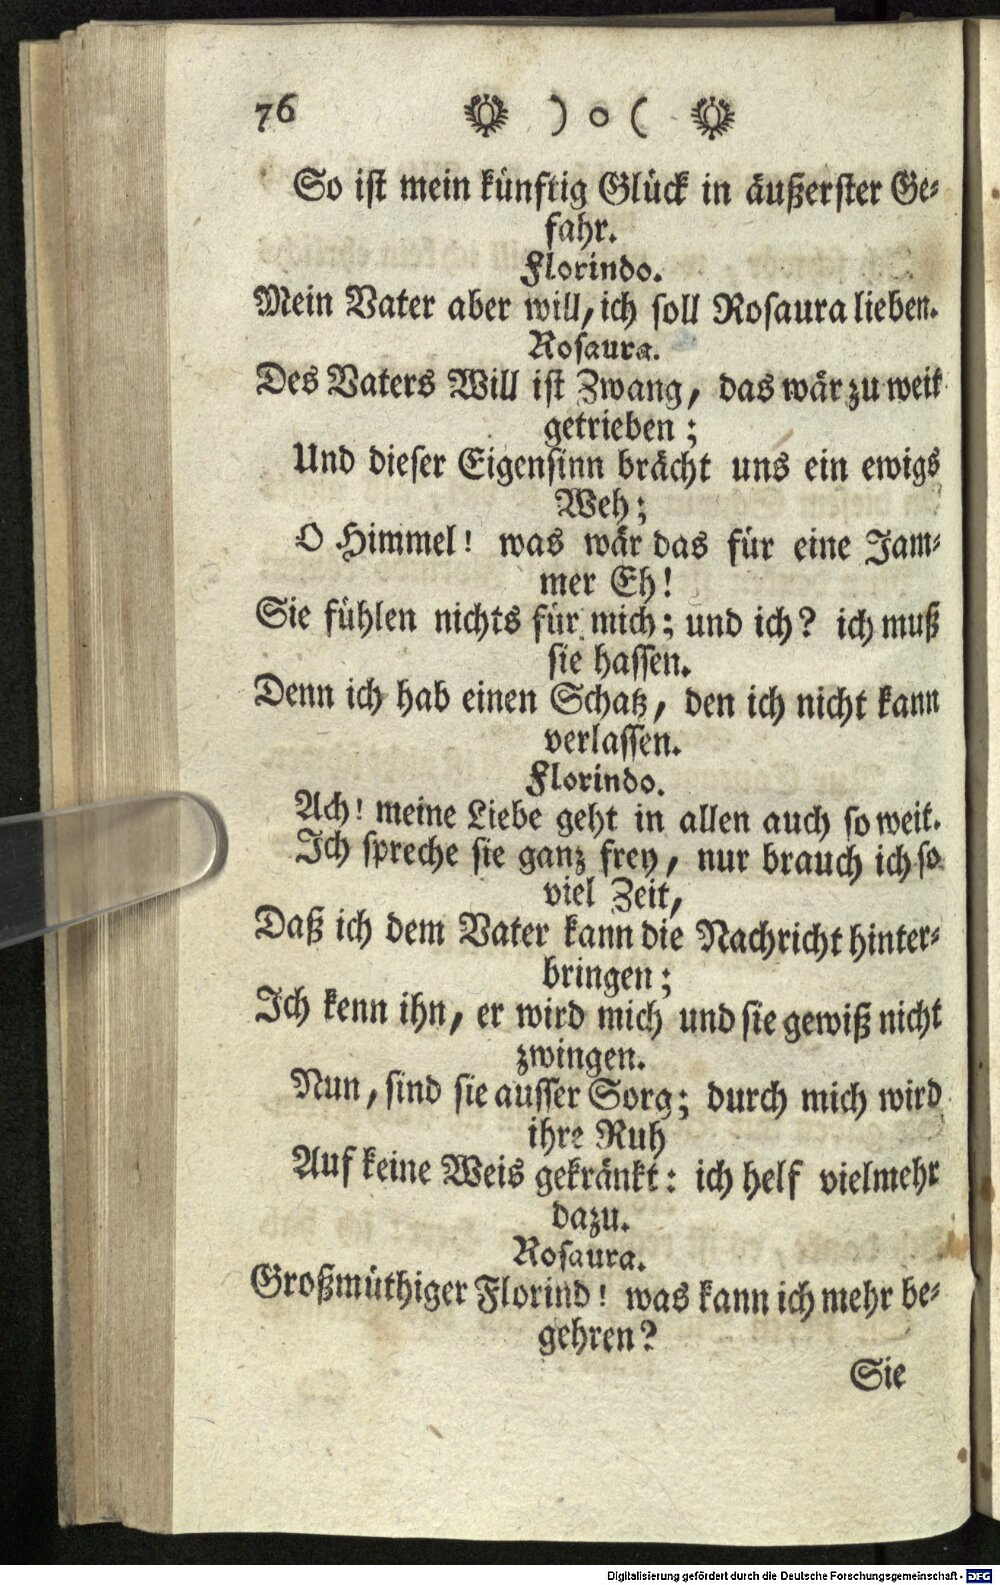 76 ) o (
So ist mein künftig Glück in äußerster Ge-
fahr.
Florindo.
Mein Vater aber will, ich soll Rosaura lieben.
Rosaura.
Des Vaters Will ist Zwang, das wär zu weit
getrieben;
Und dieser Eigensinn brächt uns ein ewigs
Weh;
O Himmel! was wär das für eine Jam-
mer Eh!
Sie fühlen nichts für mich; und ich? ich muß
sie hassen.
Denn ich hab einen Schatz, den ich nicht kann
verlassen.
Florindo.
Ach! meine Liebe geht in allen auch so weit.
Ich spreche sie ganz frey, nur brauch ich so
viel Zeit,
Daß ich dem Vater kann die Nachricht hinter-
bringen;
Ich kenn ihn, er wird mich und sie gewiß nicht
zwingen.
Nun, sind sie ausser Sorg; durch mich wird
ihre Ruh
Auf keine Weis gekränkt: ich helf vielmehr
dazu.
Rosaura.
Großmüthiger Florind! was kann ich mehr be-
gehren?
Sie
Digitalisierung gefördert durch die Deutsche Forschungsgemeinschaft - DFG